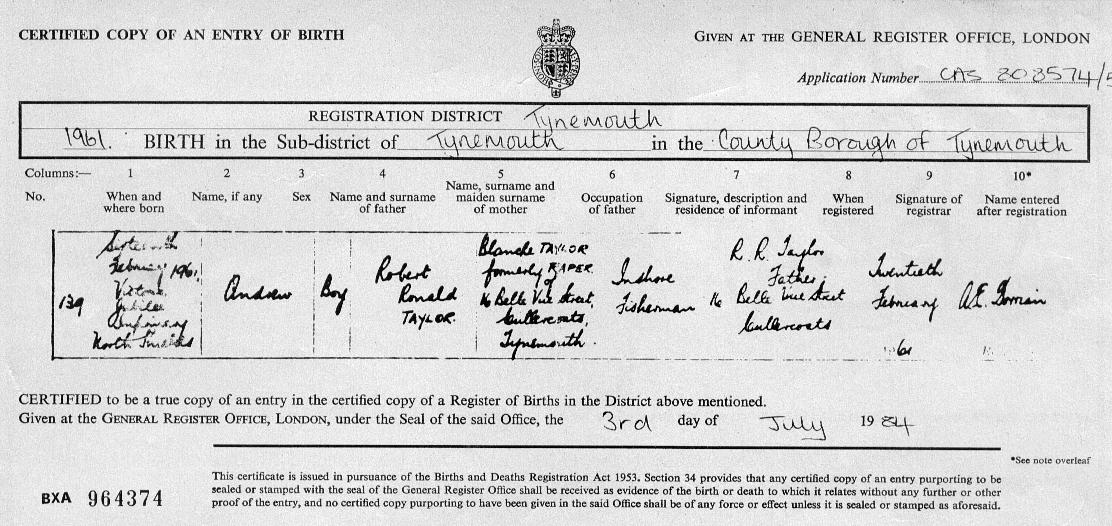 CERTIFIED COPY OF AN ENTRY OF BIRTH
GIVEN AT THE GENERAL REGISTER OFFICE, LONDON
Application Number CAS 303574/5
REGISTRATION DISTRICT Tynemouth
1961. BIRTH in the Sub-district of Tynemouth in the County Borough of Tynemouth
Columns:— 1 2 3 4 5 6 7 8 9 10*
No.
When and
where born
Name, if any
Sex
Name and surname
of father
Name, surname and
maiden surname
of mother
Occupation
of father
Signature, description and
residence of informant
When
registered
Signature of
registrar
Name entered
after registration
139
Sixteenth
February 1961
Victoria
Jubilee
Infirmary
North Shields
Andrew
Boy
Robert
Ronald
TAYLOR.
Blanche TAYLOR
formerly RAPER
of
16 Belle Vue Street,
Cullercoats,
Tynemouth.
Inshore
Fisherman
R. R. Taylor
Father
16 Belle Vue Street
Cullercoats
Twentieth
February
1961
A.E.
CERTIFIED to be a true copy of an entry in the certified copy of a Register of Births in the District above mentioned.
Given at the GENERAL REGISTER OFFICE, LONDON, under the Seal of the said Office, the 3rd day of July 1984
*See note overleaf
This certificate is issued in pursuance of the Births and Deaths Registration Act 1953. Section 34 provides that any certified copy of an entry purporting to be
sealed or stamped with the seal of the General Register Office shall be received as evidence of the birth or death to which it relates without any further or other
proof of the entry, and no certified copy purporting to have been given in the said Office shall be of any force or effect unless it is sealed or stamped as aforesaid.
BXA 964374